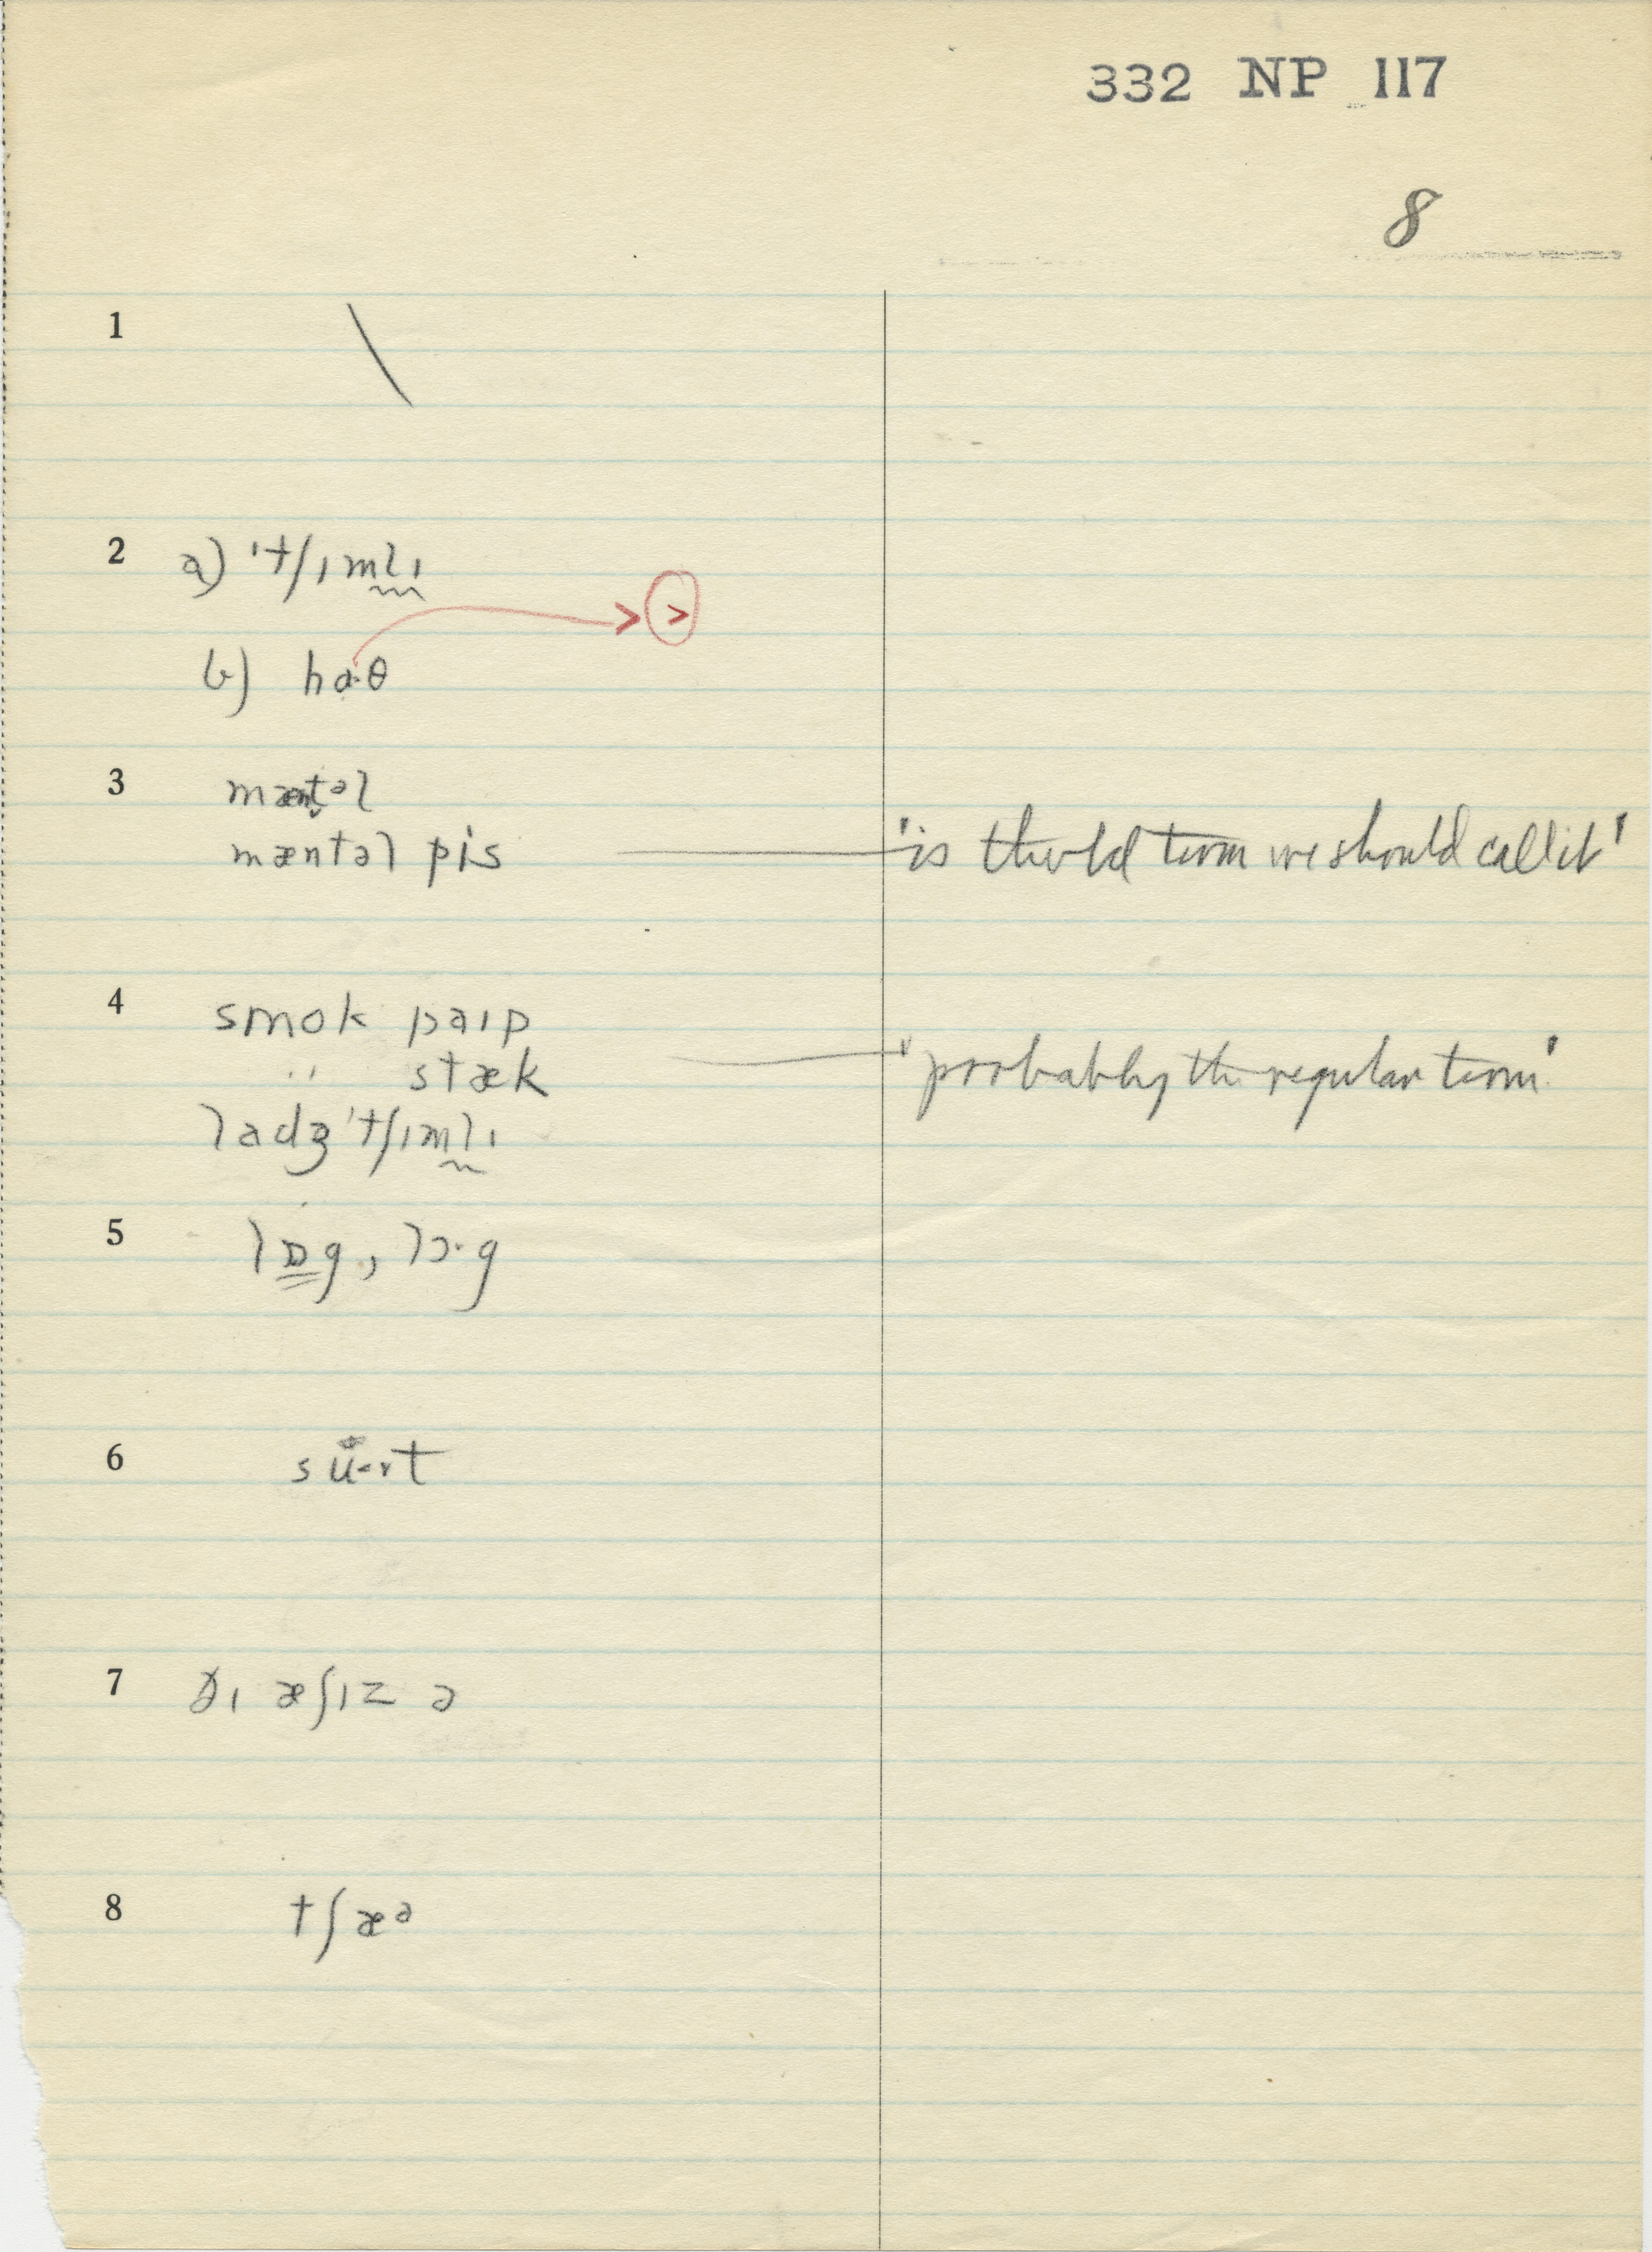 332 NP 117
8
1
2 a) 'tʃɪmlɪ
>
b) ha·θ
3 mæntəl
mæntəl pis 'is the old term we should call it'
4 smok paɪp
" stæk 'probably the regular term'
ladʒ 'tʃɪmlɪ
5 lɒg, lɔ·g
6
7 ðɪ æʃɪz ə
8 tʃæə